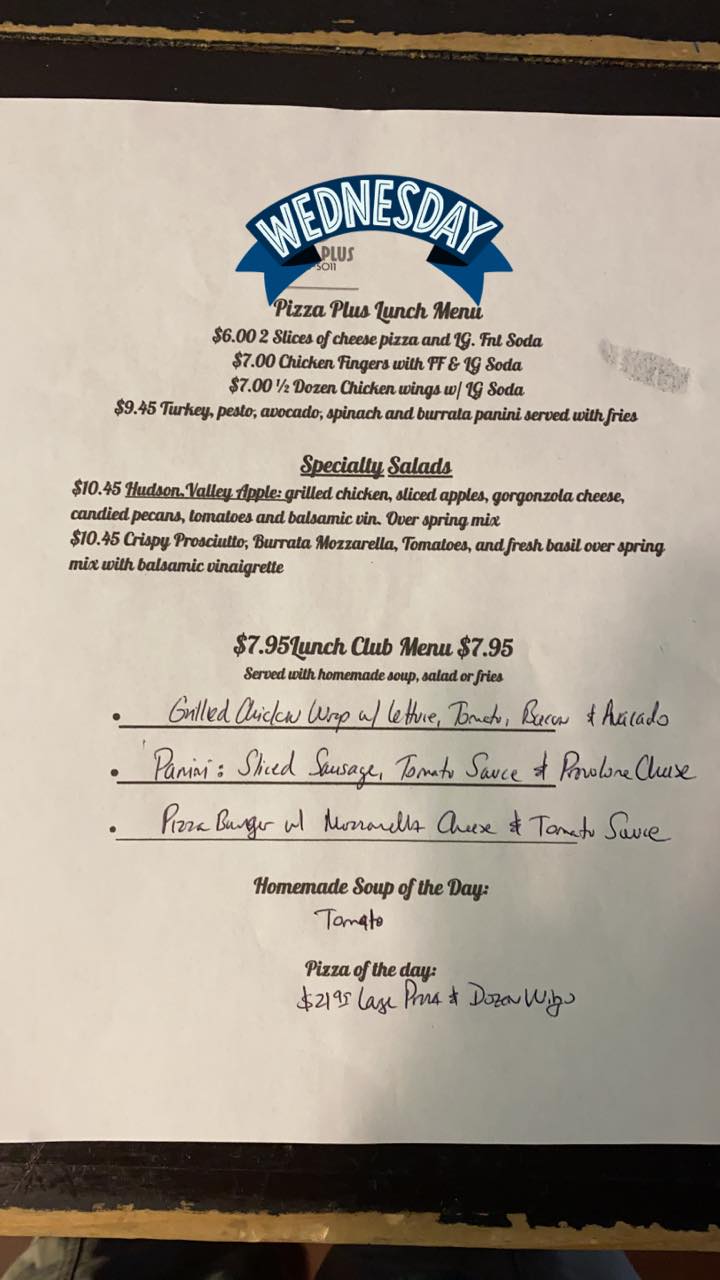 WEDNESDAY
PLUS
Pizza Plus Lunch Menu
$6.00 2 Slices of cheese pizza and LG. Fnt Soda
$7.00 Chicken Fingers with FF & LG Soda
$7.00 ½ Dozen Chicken wings w/ LG Soda
$9.45 Turkey, pesto, avocado, spinach and burrata panini served with fries
Specialty Salads
$10.45 Hudson Valley Apple: grilled chicken, sliced apples, gorgonzola cheese,
candied pecans, tomatoes and balsamic vin. Over spring mix
$10.45 Crispy Prosciutto, Burrata Mozzarella, Tomatoes, and fresh basil over spring
mix with balsamic vinaigrette
$7.95Lunch Club Menu $7.95
Served with homemade soup, salad or fries
• Grilled Chicken Wrap w/ lettuce, Tomato, Bacon & Avacado
• Panini: Sliced Sausage, Tomato Sauce & Provolone Cheese
• Pizza Burger w/ Mozzarella Cheese & Tomato Sauce
Homemade Soup of the Day:
Tomato
Pizza of the day:
$21.95 Large Pizza & Dozen Wings